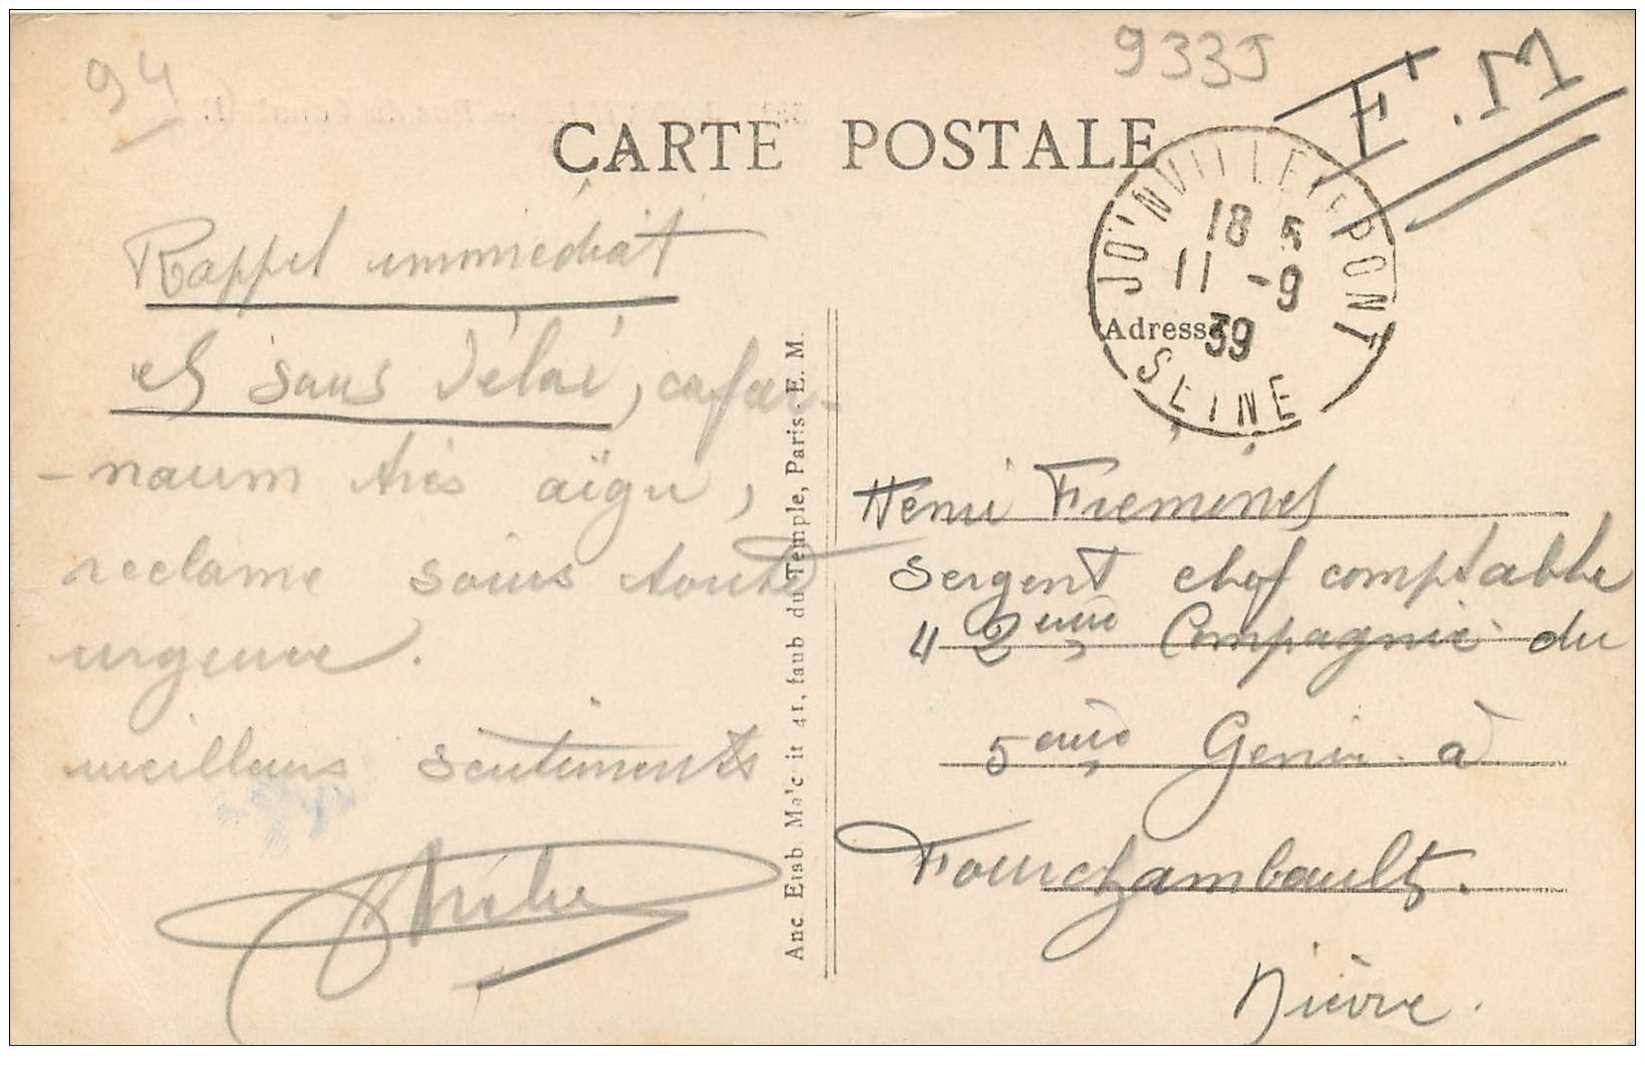 94
933J
F.M
CARTE POSTALE
JOINVILLE-LE-PONT
18 5
11 -9
39
SEINE
Adresse
Rappel immédiat
et sans délai, cafar-
-naum très aïgu,
reclame soins toute
urgence.
meilleurs sentiments
Anc Etab Ma'c it 41, faub du Temple, Paris. E. M.
Henri Freminet
Sergent chef comptable
42ème Compagnie du
5ème Genie à
Fourchambault.
Nièvre.